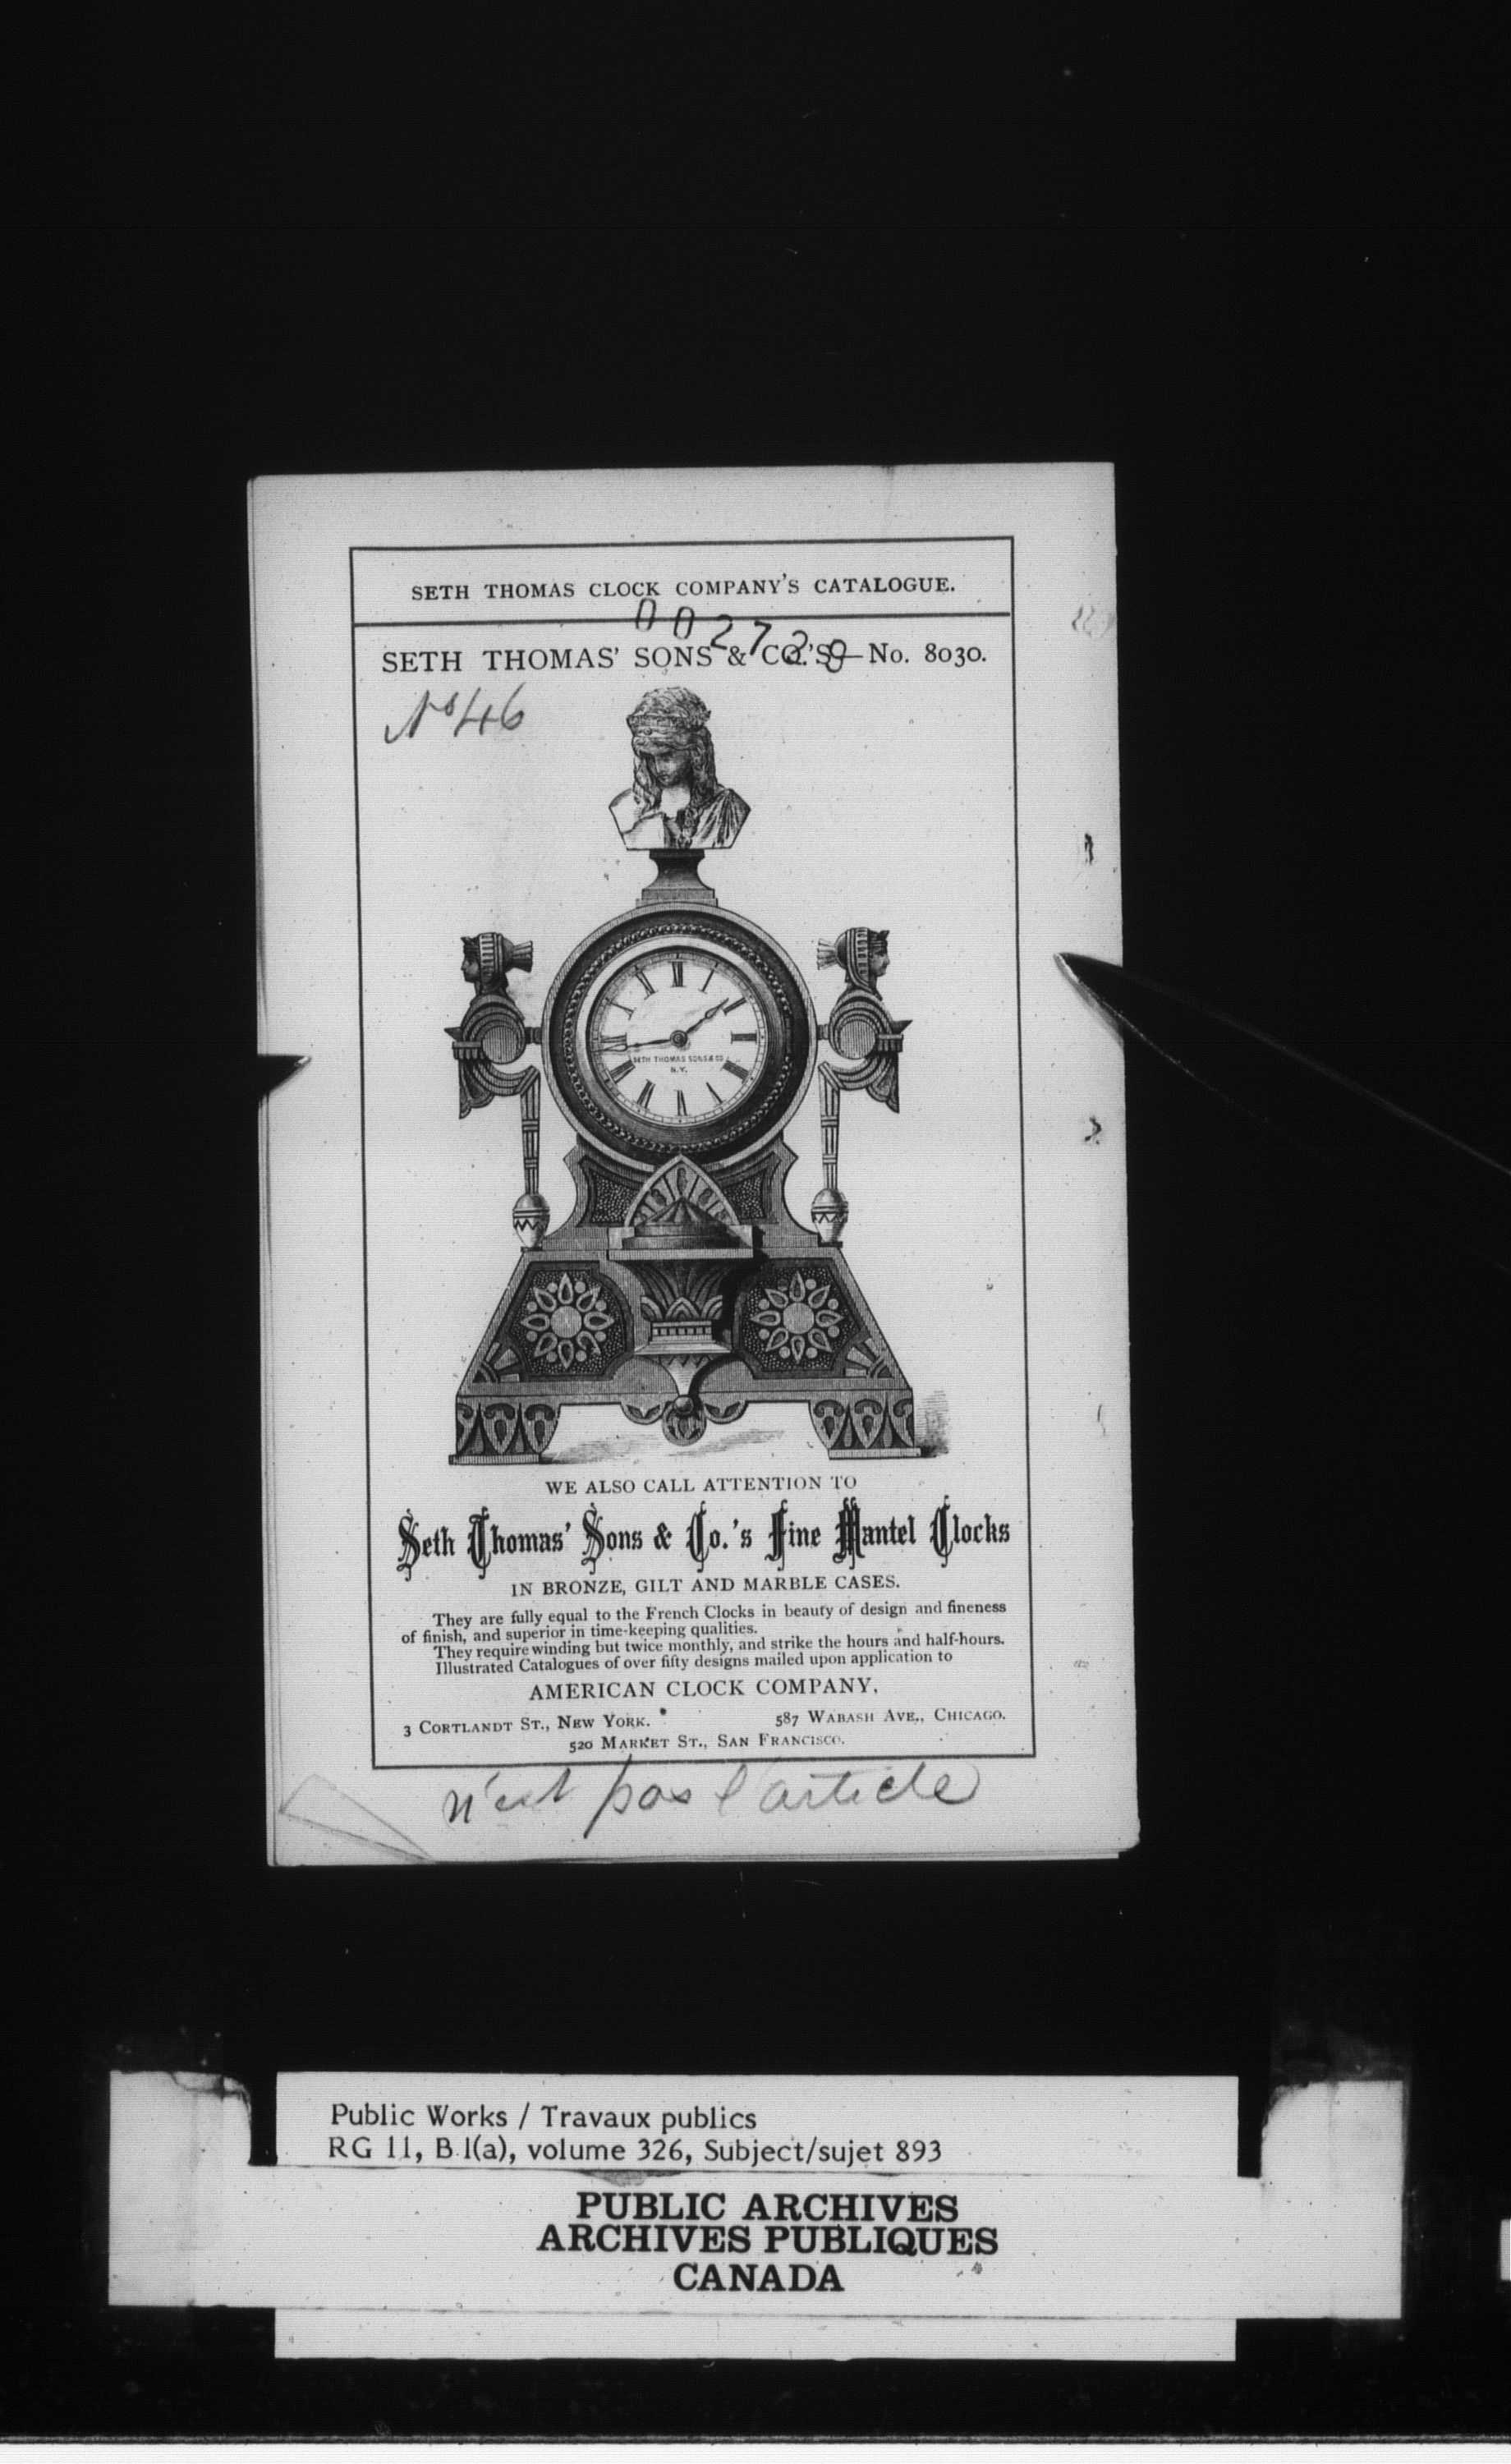 SETH THOMAS CLOCK COMPANY'S CATALOGUE.
002729
SETH THOMAS' SONS & CO.'S—No. 8030.
No 46
SETH THOMAS SONS & CO
N.Y.
WE ALSO CALL ATTENTION TO
Seth Thomas' Sons & Co.'s Fine Mantel Clocks
IN BRONZE, GILT AND MARBLE CASES.
They are fully equal to the French Clocks in beauty of design and fineness
of finish, and superior in time-keeping qualities.
They require winding but twice monthly, and strike the hours and half-hours.
Illustrated Catalogues of over fifty designs mailed upon application to
AMERICAN CLOCK COMPANY,
3 CORTLANDT ST., NEW YORK. 587 WABASH AVE., CHICAGO.
520 MARKET ST., SAN FRANCISCO.
n'est pas l'article
Public Works / Travaux publics
RG 11, B 1(a), volume 326, Subject/sujet 893
PUBLIC ARCHIVES
ARCHIVES PUBLIQUES
CANADA